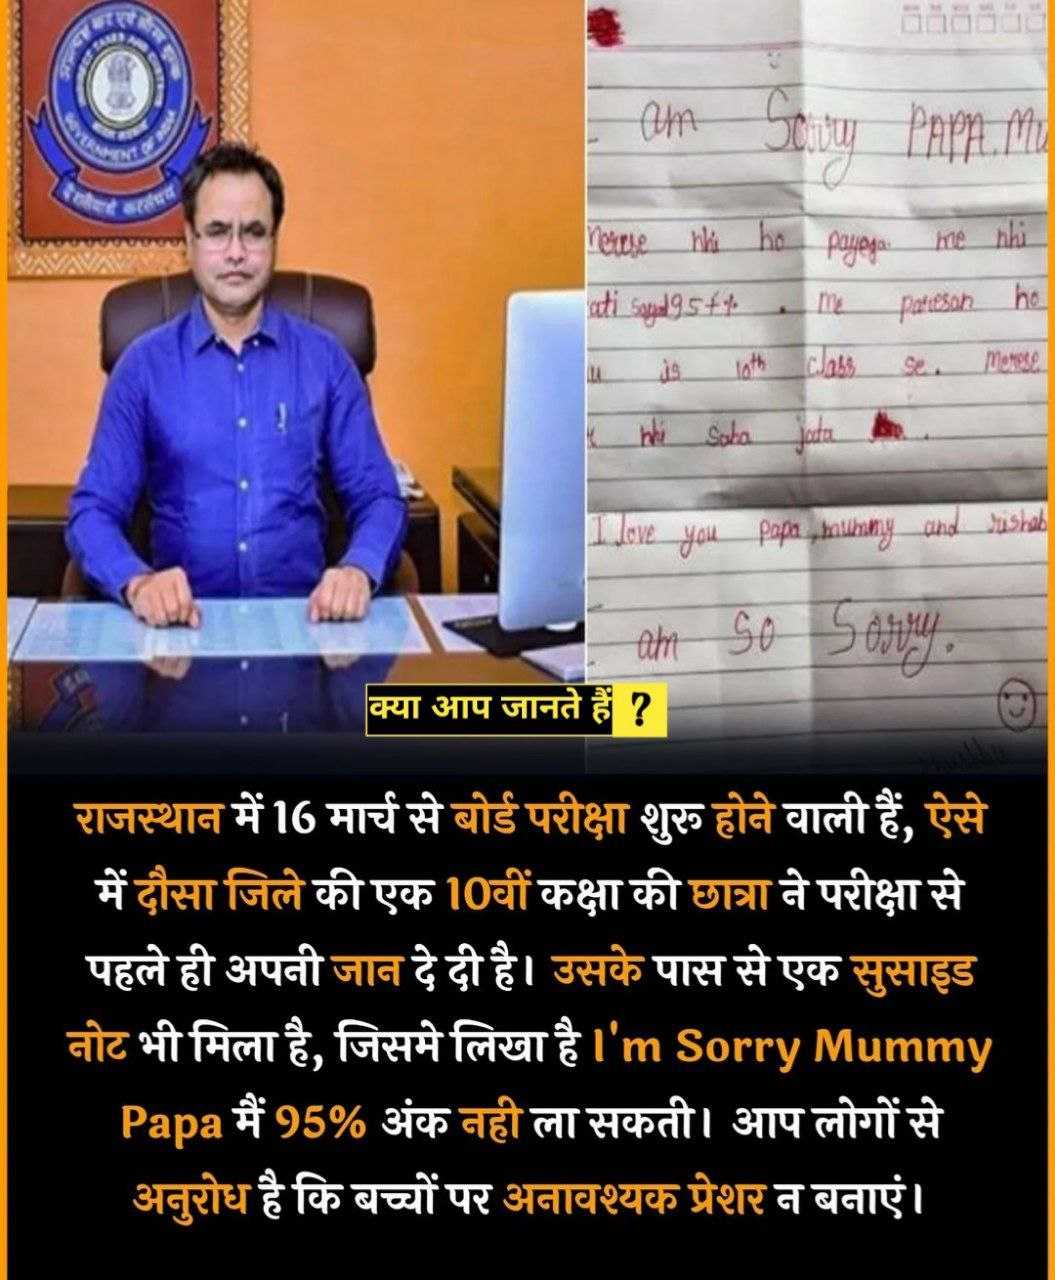 GOVERNMENT OF INDIA
am Sorry PAPA. Mu
Merese nhi ho payega. me nhi
95+%. me paresan ho
is 10th class se. Merese
nhi saha jata
I love you papa, mummy and rishab
am so Sorry.
क्या आप जानते हैं ?
राजस्थान में 16 मार्च से बोर्ड परीक्षा शुरू होने वाली हैं, ऐसे
में दौसा जिले की एक 10वीं कक्षा की छात्रा ने परीक्षा से
पहले ही अपनी जान दे दी है। उसके पास से एक सुसाइड
नोट भी मिला है, जिसमे लिखा है I'm Sorry Mummy
Papa मैं 95% अंक नही ला सकती। आप लोगों से
अनुरोध है कि बच्चों पर अनावश्यक प्रेशर न बनाएं।